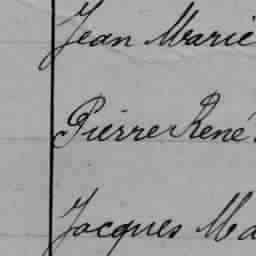 Jean Marie
Pierre René
Jacques Ma